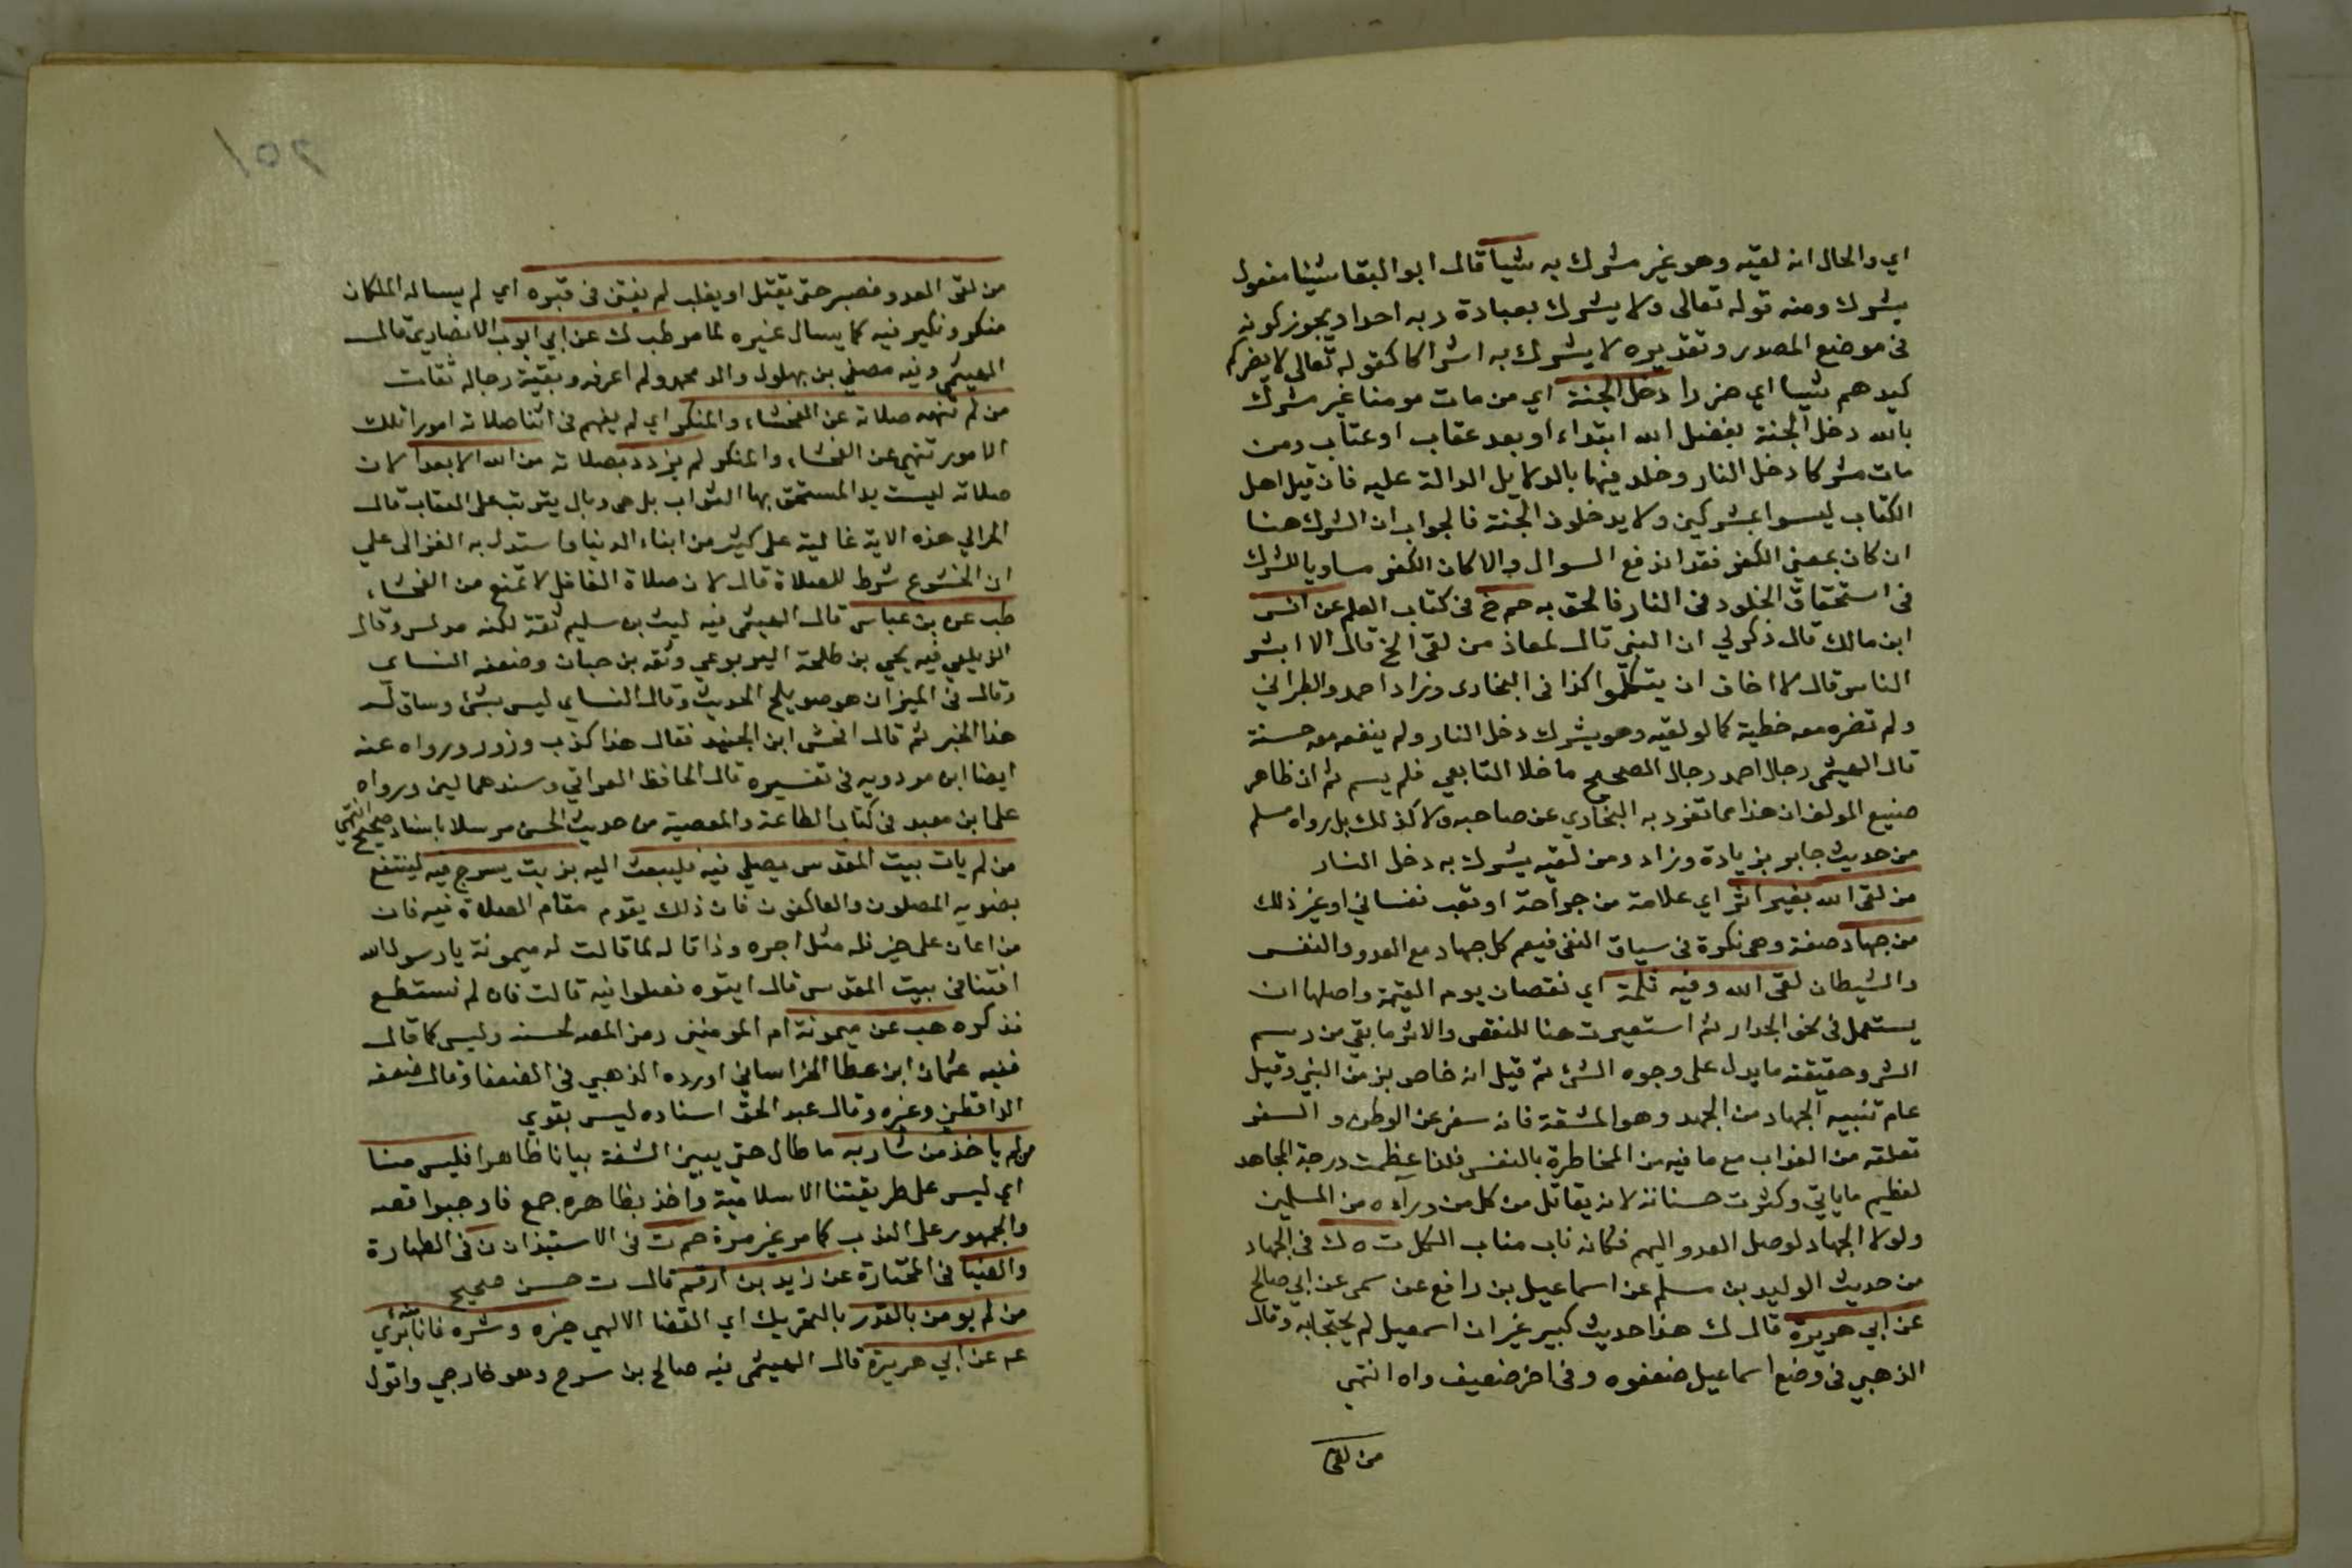 اي والحال انه لقيه وهو غير مشرك به شيا قال ابو البقا شيئا مفعول
يشرك ومنه قوله تعالى ولا يشرك بعبادة ربه احدا ويجوز كونه
في موضع المصدر وتقديره لا يشرك به اشراكا كقوله تعالى لا يضركم
كيدهم شيا اي ضررا دخل الجنة اي من مات مومنا غير مشرك
بالله دخل الجنة بفضل الله ابتداء او بعد عقاب او عتاب ومن
مات مشركا دخل النار وخلد فيها بالدلايل الدالة عليه فان قيل اهل
الكتاب ليسوا بمشركين ولا يدخلون الجنة فالجواب ان الشرك هنا
ان كان بمعنى الكفر فقد اندفع السوال والا كان الكفر مساويا للشرك
في استحقاق الخلود في النار فالحق به حم خ في كتاب العلم عن انس
ابن مالك قال ذكر لي ان النبي قال لمعاذ من لقى الخ قال الا ابشر
الناس قال لا اخاف ان يتكلموا كذا في البخارى وزاد احمد والطبراني
ولم تضره معه خطية كما لو لقيه وهو يشرك دخل النار ولم ينفعه معه حسنة
قال الهيثمى رجال احمد رجال الصحيح ما خلا التابعي فلم يسم ثم ان ظاهر
صنيع المولف ان هذا مما تفرد به البخاري عن صاحبه ولا كذلك بل رواه مسلم
من حديث جابر بزيادة وزاد ومن لقيه يشرك به دخل النار
من لقى الله بغير اثر اي علامة من جراحة او تعب نفساني او غير ذلك
من جهاد صفة وهي نكرة في سياق النفي فيعم كل جهاد مع العدو والنفس
والشيطان لقى الله وفيه ثلمة اي نقصان يوم القيمة واصلها ان
يستعمل في نحو الجدار ثم استعيرت هنا للنقص والاثر ما بقي من رسم
الشي وحقيقته ما يدل على وجوه الشئ ثم قيل انه خاص بزمن النبي وقيل
عام تنبيه الجهاد من الجهد وهو المشقة فانه سفر عن الوطن و السفر
تعلقه من العذاب مع ما فيه من المخاطرة بالنفس فلذا عظمت درجة المجاهد
لعظيم ما ياتي وكثرت حسناته لانه يقاتل من كل من وراه من المسلمين
ولولا الجهاد لوصل العدو اليهم فكانه ناب مناب الكل ت ه ك في الجهاد
من حديث الوليد بن مسلم عن اسماعيل بن رافع عن سمى عن ابي صالح
عن ابي هريرة قال ك هذا حديث كبير غير ان اسمعيل لم يحتجا به وقال
الذهبي في وضع اسماعيل ضعفوه وفي اخر ضعيف واه انتهى
من لقى
من لقى العدو فصبر حتى يقتل او يغلب لم يفتن في قبره اي لم يساله الملكان
منكر ونكير فيه كما يسال غيره لما مر طب ك عن ابي ايوب الانصاري قال
الهيثمى وفيه مصفي بن بهلول والد محمد ولم اعرفه وبقية رجاله ثقات
من لم تنهه صلاته عن الفحشاء والمنكر اي لم يفهم في اثنا صلاته امورا تلك
الامور تنهي عن الفحشاء والمنكر لم يزدد بصلاته من الله الا بعدا لان
صلاته ليست يد المستحق بها الثواب بل هي وبال يترتب على العقاب قال
الحرالي هذه الاية غالبة على كثير من ابناء الدنيا واستدل به الغزالى علي
ان الخشوع شرط للصلاة قال لان صلاة الغافل لا تمنع من الفحشاء
طب عن بن عباس قال الهيثمى فيه ليث بن سليم ثقة لكنه مدلس وقال
الزيلعي فيه يحيي بن طلحة اليربوعي وثقه بن حبان وضعفه النساى
وقال في الميزان هو صويلح الحديث وقال النساي ليس بشئ وساق له
هذا الخبر ثم قال افحش ابن الجنيد فقال هذا كذب وزور ورواه عنه
ايضا ابن مردويه في تفسيره قال الحافظ العراقي وسندهما لين ورواه
على ابن معبد في كتاب الطاعة والمعصية من حديث الحسن مرسلا باسناد صحيح انتهى
من لم يات بيت المقدس يصلي فيه فليبعث اليه بزيت يسرج فيه لينتفع
بضويه المصلون والعاكفون فان ذلك يقوم مقام الصلاة فيه فان
من اعان على خير فله مثل اجره وذا قاله لما قالت له ميمونة يا رسول الله
افتنا في بيت المقدس قال ايتوه فصلوا فيه قالت فان لم نستطع
فذكره هب عن ميمونة ام المومنين رمز المصه لحسنه وليس كما قال
ففيه عثمان ابن عطا الخراساني اورده الذهبي في الضعفا وقال ضعفه
الداقطني وغيره وقال عبد الحق اسناده ليس بقوي
من لم ياخذ من شاربه ما طال حتى يبين الشفة بيانا ظاهرا فليس منا
اي ليس على طريقتنا الاسلامية واخذ بظاهره جمع فاوجبوا قصه
والجمهور على الندب كما مر غير مرة حم ت في الاستيذان ن في الطهارة
والضيا في المختارة عن زيد بن ارقم قال ت حسن صحيح
من لم يومن بالقدر بالتحريك اي القضا الالهي خيره وشره فانا بري منه
ع عن ابي هريرة قال الهيثمى فيه صالح بن سرح وهو خارجي واقول